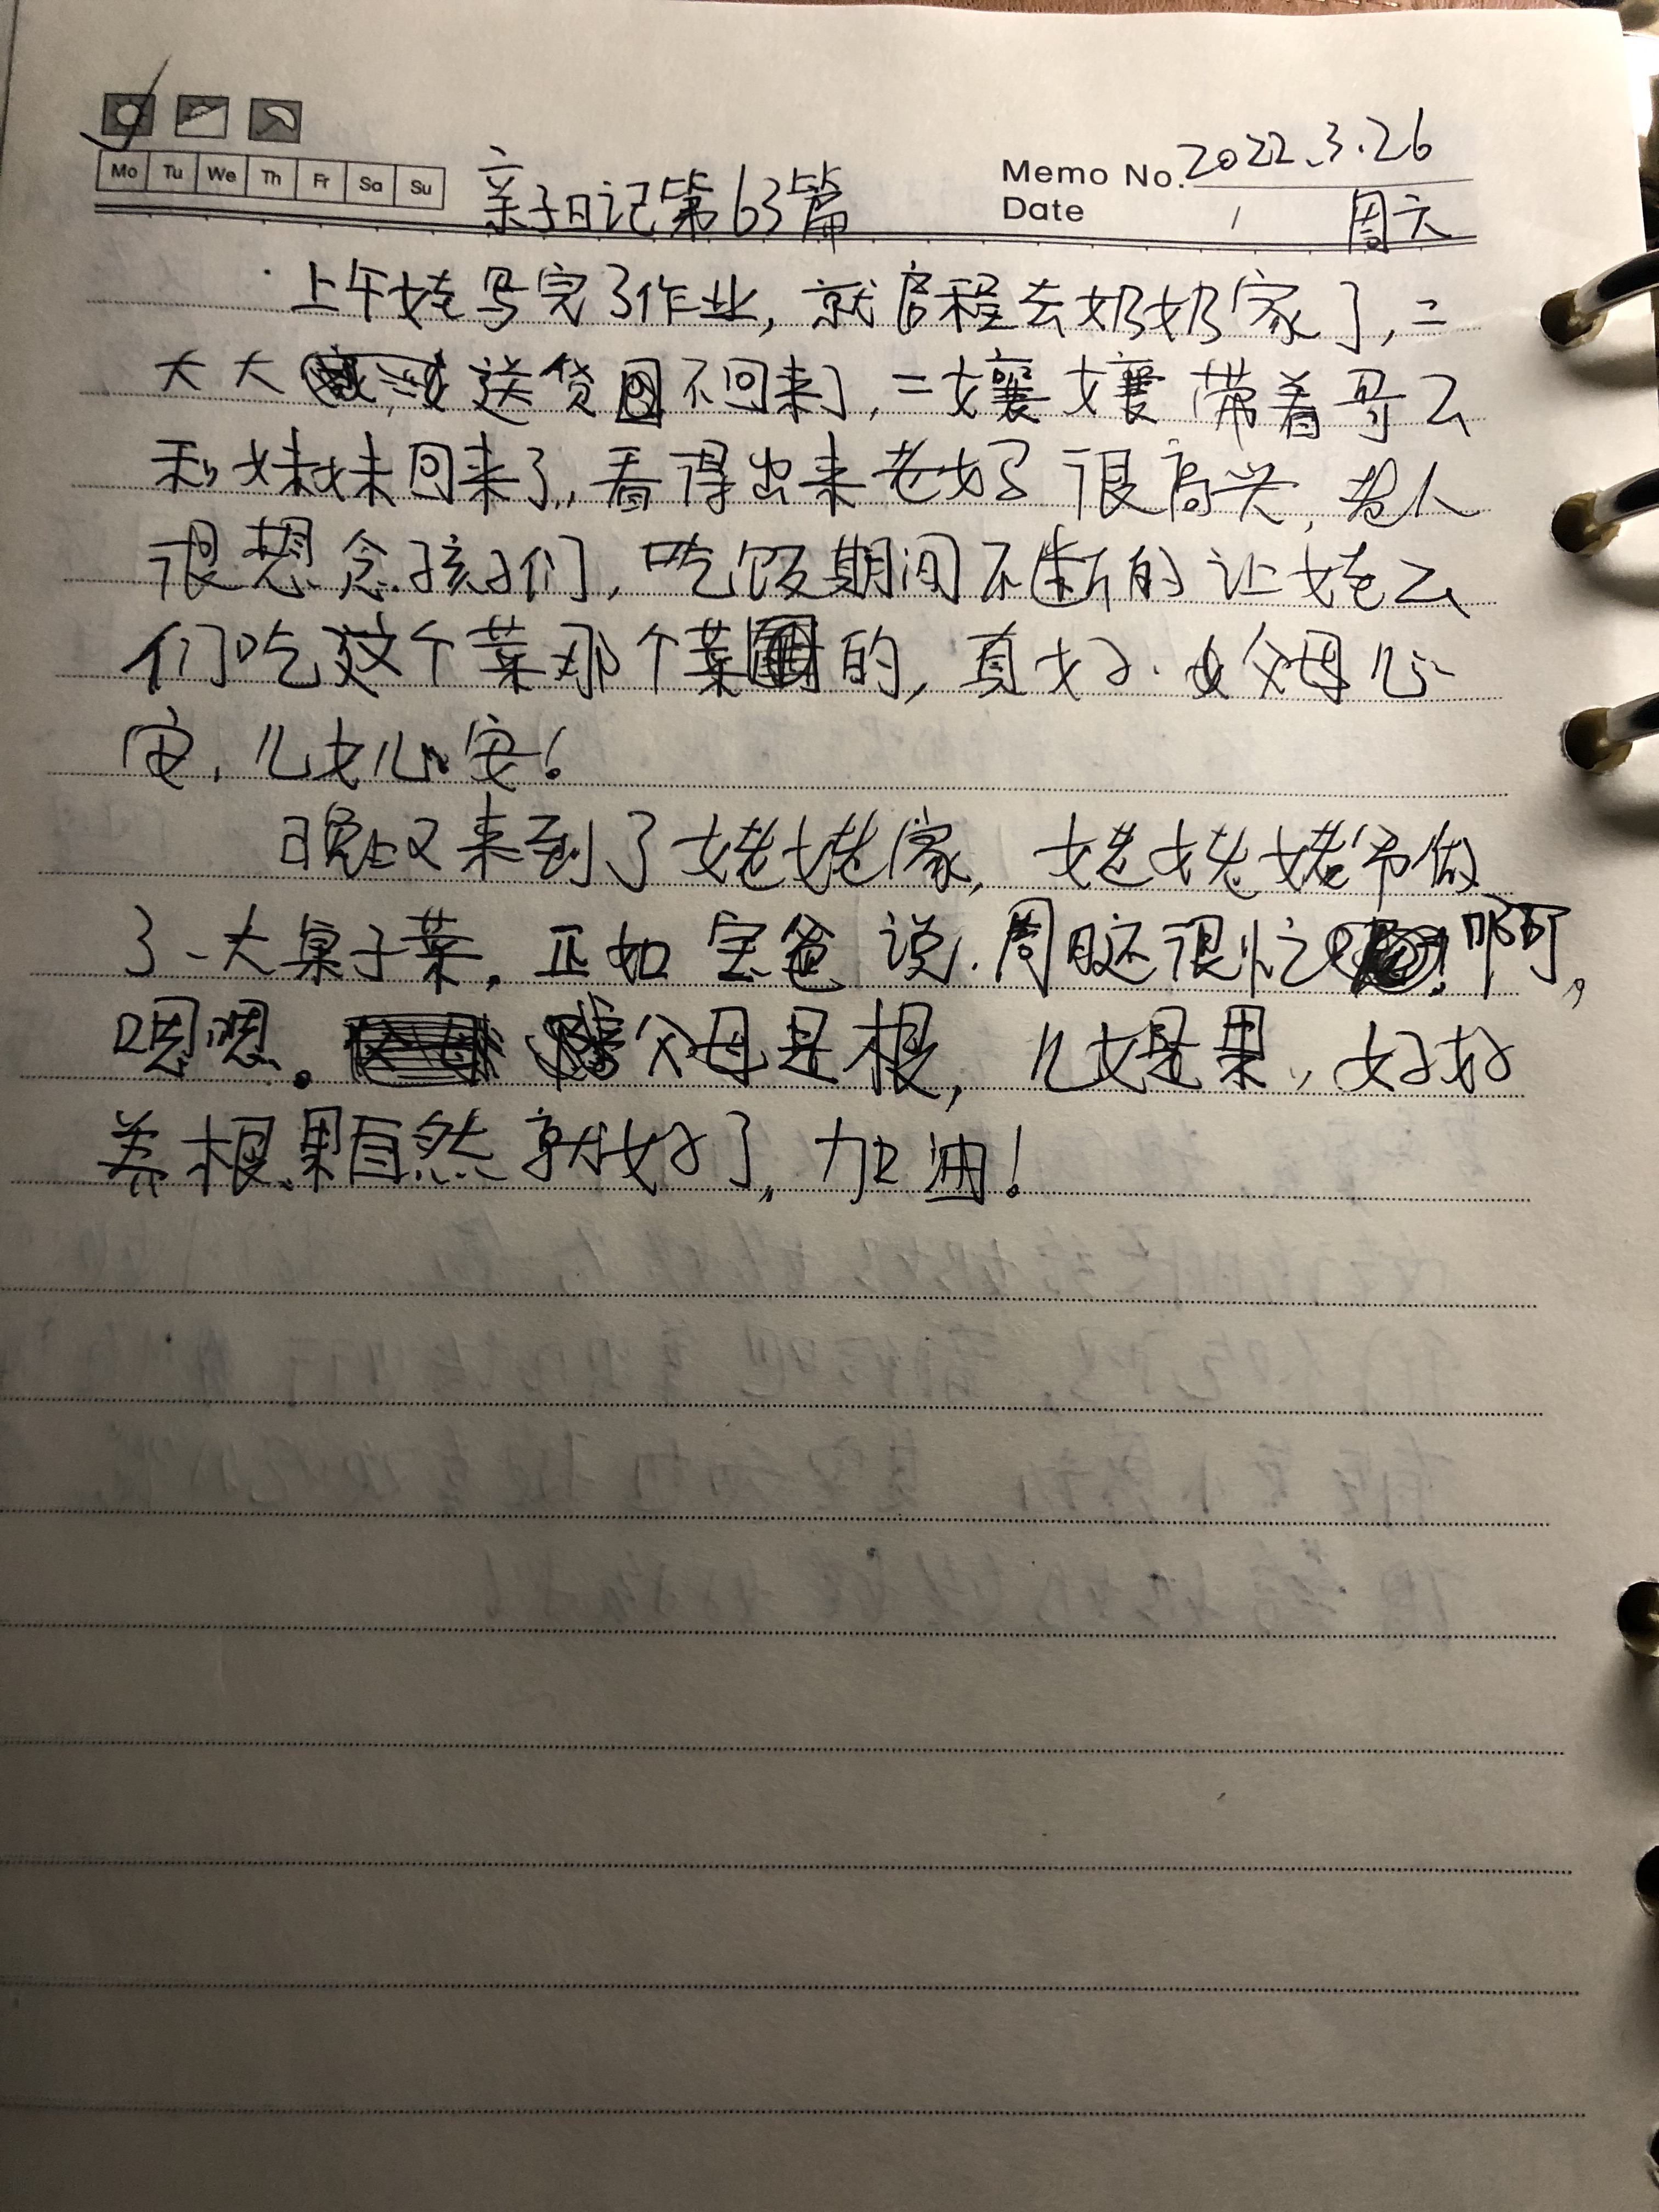 Mo Tu We Th Fr Sa Su
亲子日记第63篇
Memo No. 2022.3.26
Date / 周六
上午娃写完了作业,就启程去奶奶家了,二
大大送货不回来了,二孃孃带着哥哥
和妹妹回来了,看得出来老奶很高兴,老人
很想念孩子们,吃饭期间不断的让娃娃
们吃这个菜那个菜的,真好.父母心
安,儿女心安!
晚上又来到了姥姥家,姥姥姥爷做
了一大桌子菜,正如宝爸说.周日还很忙啊,
嗯嗯。父母是根,儿女是果,好好
养根果自然就好了,加油!